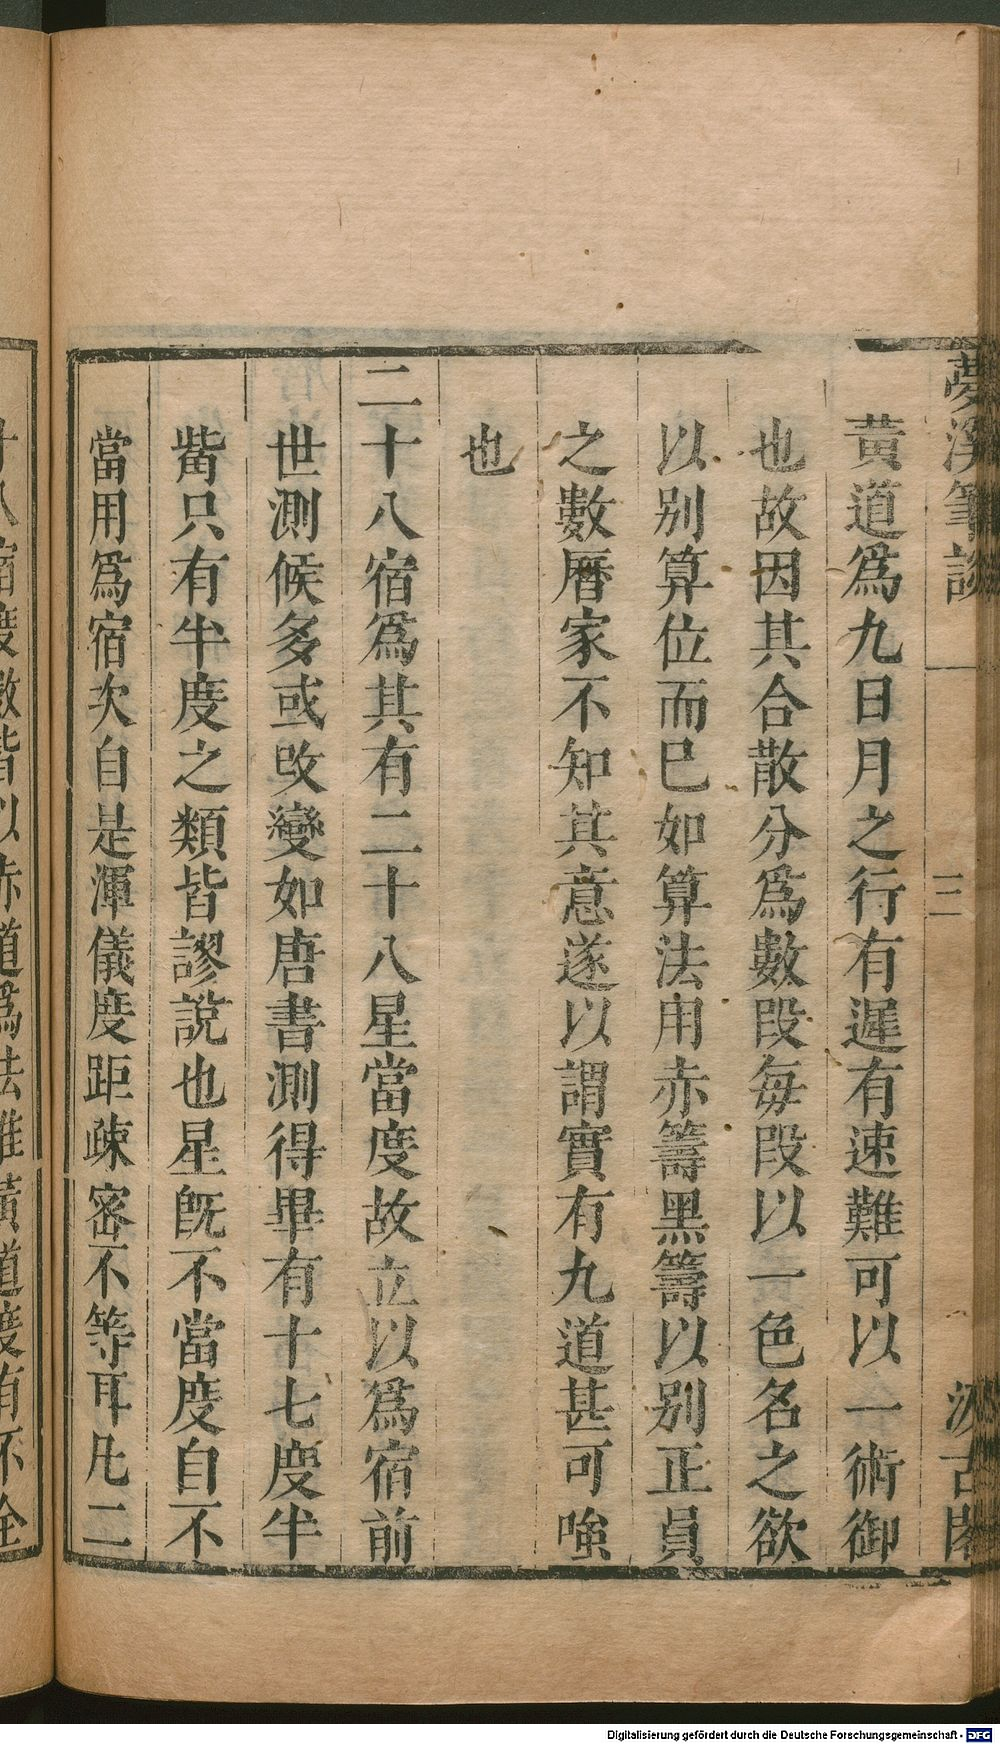 夢溪筆談
三
汲古閣
黃道爲九日月之行有遲有速難可以一術御
也故因其合散分爲數段每段以一色名之欲
以别算位而巳如算法用赤籌黑籌以别正負
之數曆家不知其意遂以謂實有九道甚可嗤
也
二十八宿爲其有二十八星當度故立以爲宿前
世測候多或改變如唐書測得畢有十七度半
觜只有半度之類皆謬說也星旣不當度自不
當用爲宿次自是渾儀度距疎密不等耳凡二
八宿度數皆以赤道爲法唯黃道度有不全
Digitalisierung gefördert durch die Deutsche Forschungsgemeinschaft - DFG